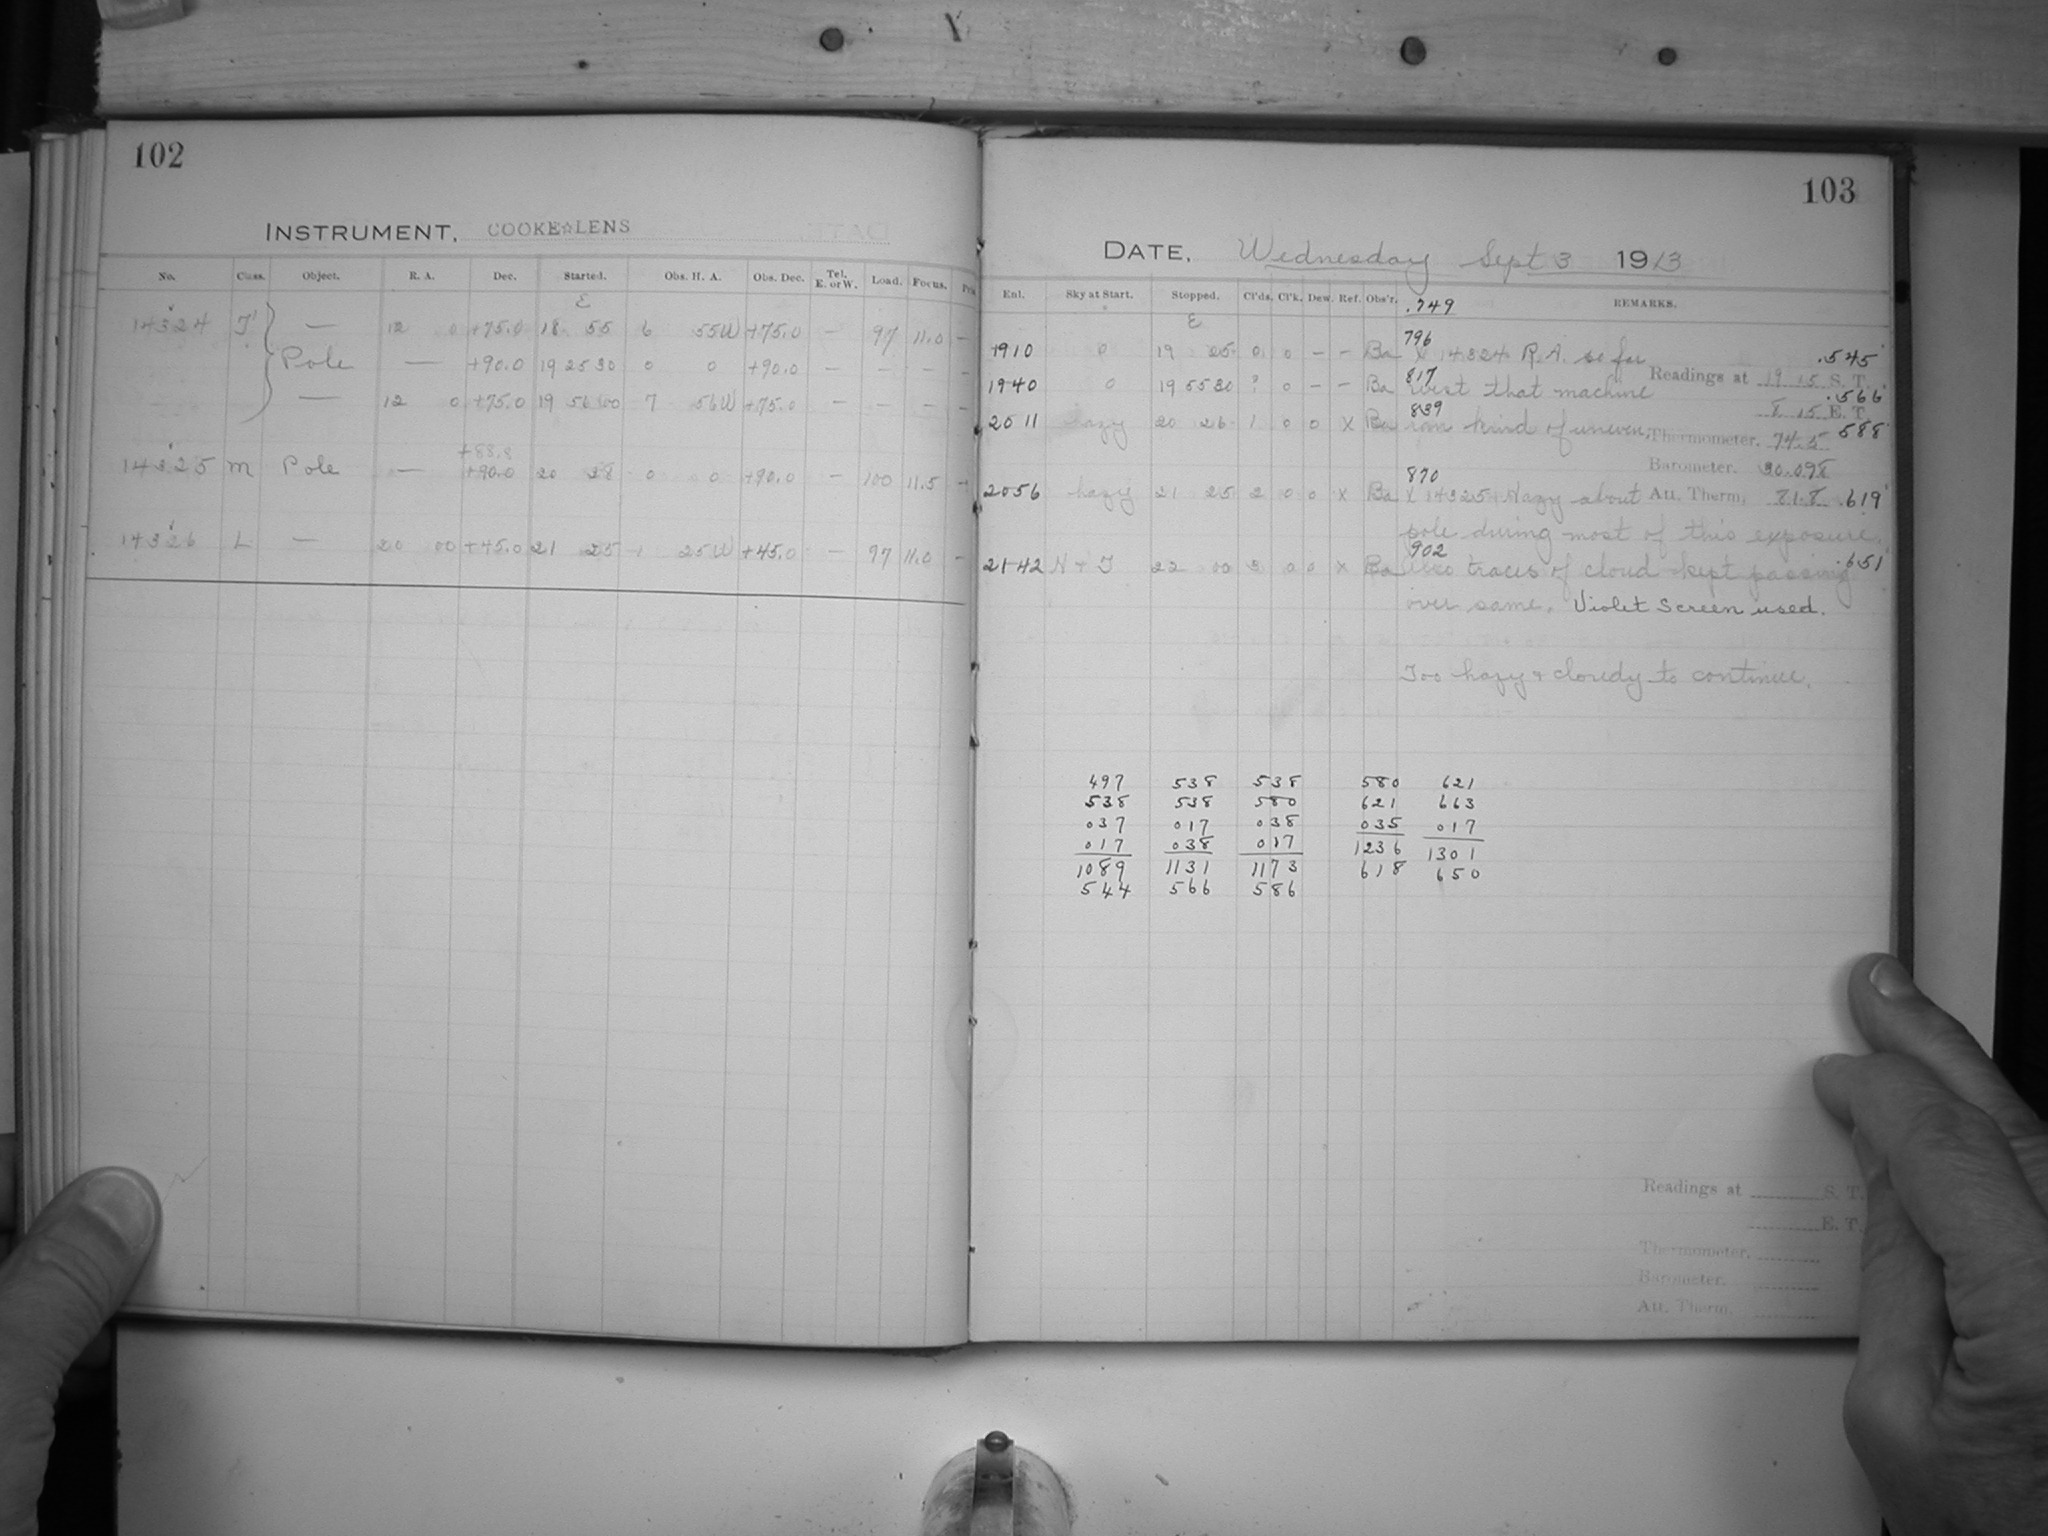 102
INSTRUMENT, COOKE☆LENS
No. Class. Object. R. A. Dec. Started. Obs. H. A. Obs. Dec. Tel. E. or W. Load. Focus.
E
14324 — 12 0 +75.0 18 55 6 55W +75.0 — 97 11.0 —
Pole — +90.0 19 25 30 0 0 +90.0 — — — —
— 12 0 +75.0 19 56 00 7 56W +75.0 — — — —
+88.8
14325 M Pole — +90.0 20 28 0 0 +90.0 — 100 11.5 —
14326 L — 20 00 +45.0 21 25 1 25W +45.0 — 97 11.0 —
103
DATE, Wednesday Sept 3 1913
Enl. Sky at Start. Stopped. Cl'ds. Cl'k. Dew. Ref. Obs'r. .749 REMARKS.
E
1910 0 19 25 0 0 — — Ba 796 X 14324 R.A. so far .545
Readings at 19 15 S. T.
1940 0 19 55 30 ? 0 — — Ba 817 West that machine .566
8 15 E. T.
2011 hazy 20 26 1 0 0 X Ba 839 ran kind of uneven, Thermometer. 74.5 588
Barometer. 30.098
2056 hazy 21 25 2 0 0 X Ba 870 X 14325 Hazy about Att. Therm. 81.8 .619
pole during most of this exposure.
2142 H + T 22 00 2 0 0 X Ba 902 Also traces of cloud kept passing .651
over same. Violet Screen used.
Too hazy & cloudy to continue.
497 538 538 580 621
538 538 580 621 663
037 017 038 035 017
017 038 017 1236 1301
1089 1131 1173 618 650
544 566 586
Readings at S. T.
E. T.
Thermometer.
Barometer.
Att. Therm.